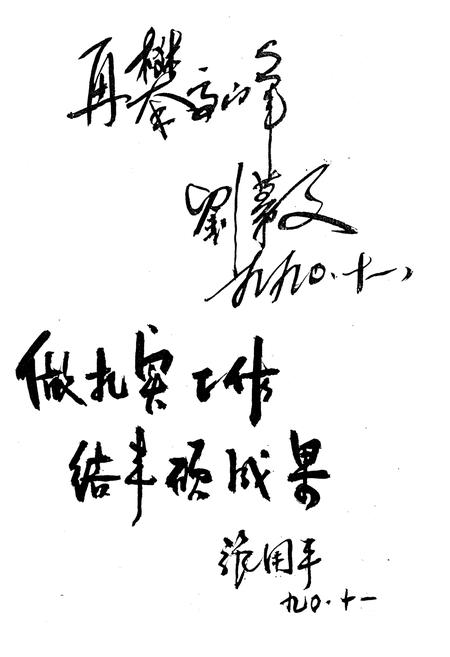 再攀高峰
劉慕文
九九〇.十一、
做扎实工作
结丰硕成果
张用平
九〇.十一